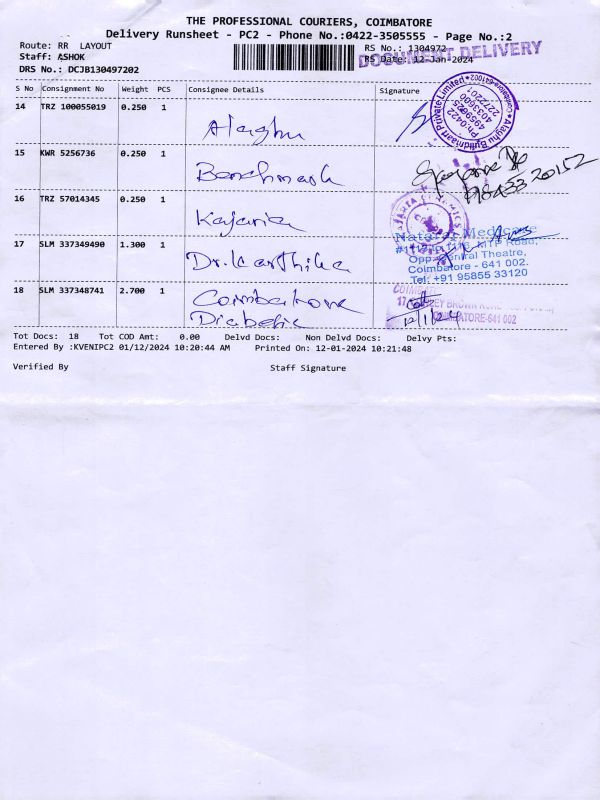 THE PROFESSIONAL COURIERS, COIMBATORE
Delivery Runsheet - PC2 - Phone No.:0422-3505555 - Page No.:2
Route: RR LAYOUT
RS No.: 1304972
DOCUMENT DELIVERY
Staff: ASHOK
RS Date: 12-Jan-2024
DRS No.: DCJB130497202
S No Consignment No Weight PCS Consignee Details Signature
14 TRZ 100055019 0.250 1
Alaghu
Alaghu Bjuthmaan Private Limited
Coimbatore-641002
Ph:0422
4959625
4033600
2272201
15 KWR 5256736 0.250 1
Benchmark
98433 20152
16 TRZ 57014345 0.250 1
Kajaria
Nataraj Medicare
MTP Road,
Opp. Central Theatre,
Coimbatore - 641 002.
Tel: +91 95855 33120
17 SLM 337349490 1.300 1
Dr.Karthika
18 SLM 337348741 2.700 1
Coimbatore
Diabetic
COIMBATORE-641 002
12/1/24
Tot Docs: 18 Tot COD Amt: 0.00 Delvd Docs: Non Delvd Docs: Delvy Pts:
Entered By :KVENIPC2 01/12/2024 10:20:44 AM Printed On: 12-01-2024 10:21:48
Verified By Staff Signature